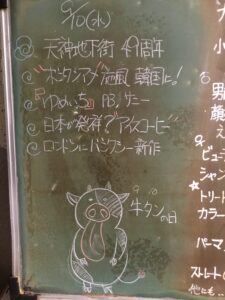 9/10(水)
天神地下街 49周年
"ボンタンアメ"旋風 韓国に!
"ゆめいち" PB, サニー
日本が発祥? "アイスコーヒー"
ロンドンにバンクシー新作
9 10
牛タンの日
小
男
ビュー
シャン
☆トリート
カラー
パーマ
ストレート(
他にも‥